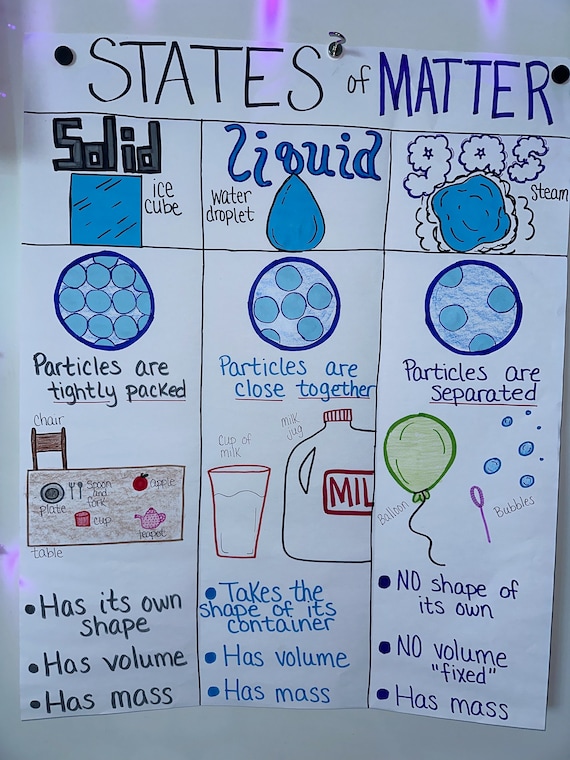 STATES of MATTER
Solid
ice
cube
Particles are
tightly packed
Chair
plate
Spoon
and
fork
apple
cup
teapot
table
Has its own
shape
Has volume
Has mass
liquid
Water
droplet
Particles are
close together
Cup of
milk
milk
jug
MIL
Takes the
shape of its
container
Has volume
Has mass
gas
Steam
Particles are
Separated
Balloon
Bubbles
NO shape of
its own
NO volume
"fixed"
Has mass